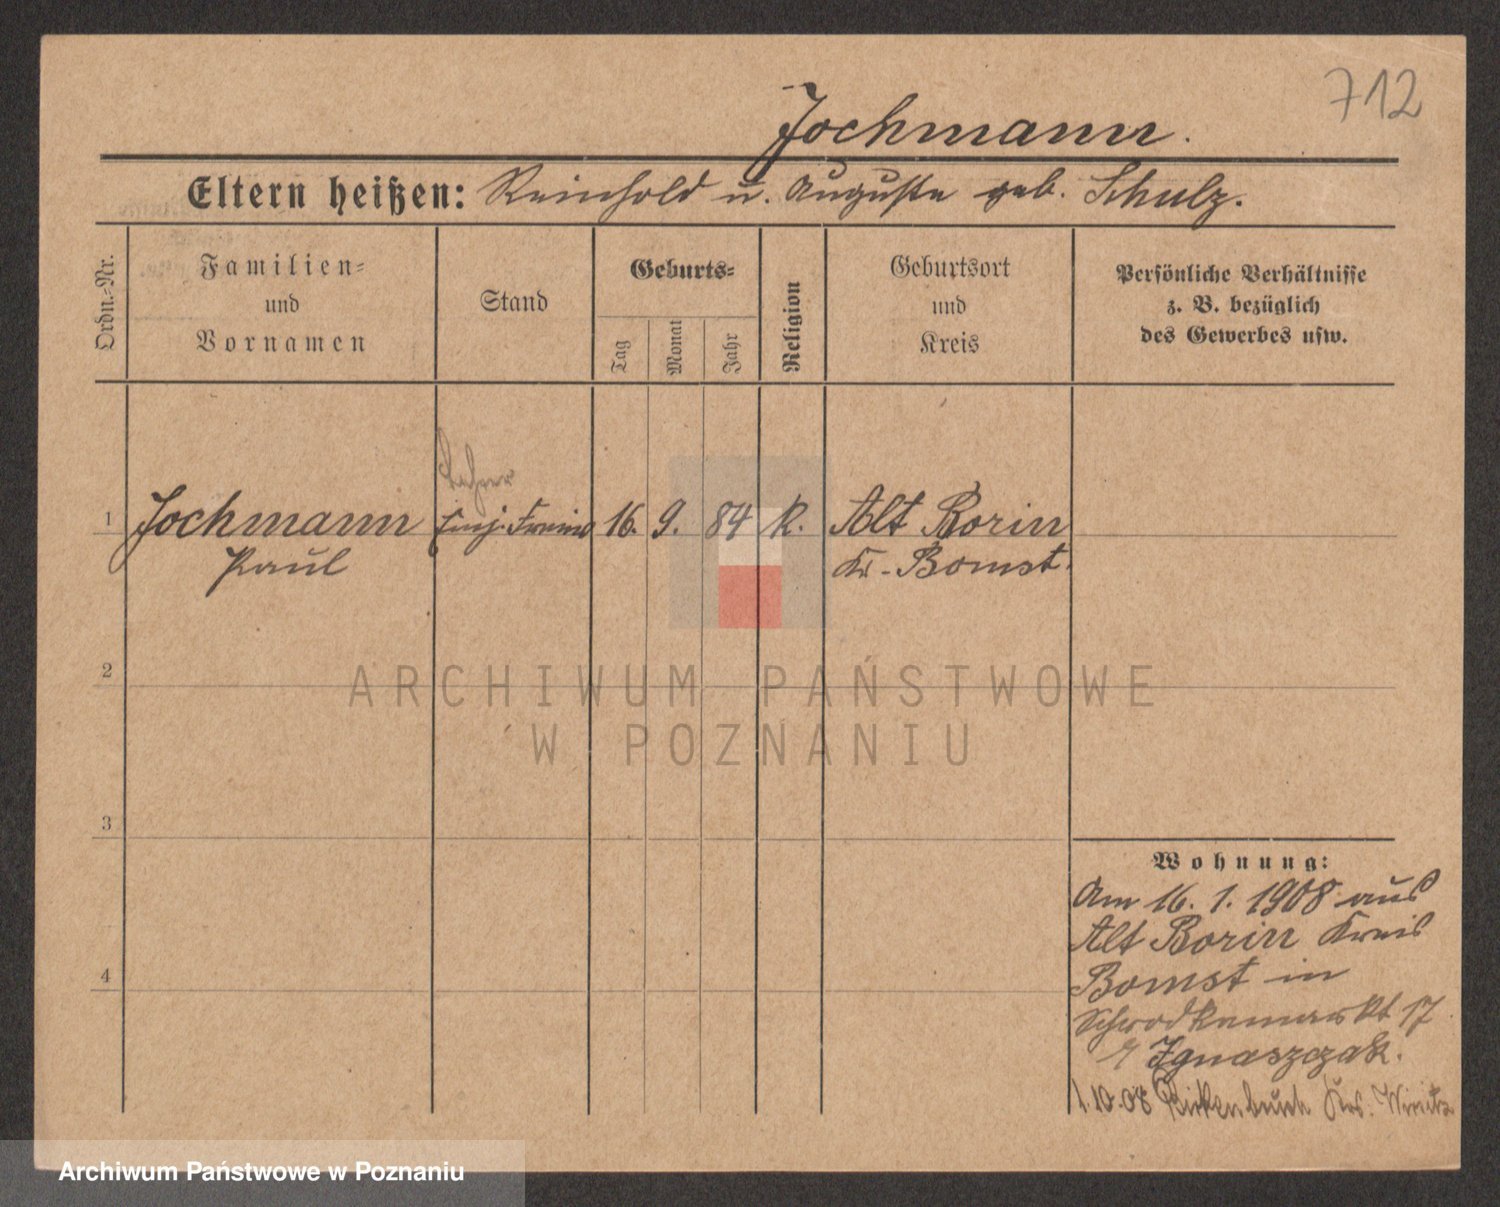 712
Jochmann.
Eltern heißen: Reinhold u. Auguste geb. Schulz.
Ordn.-Nr.
Familien-
und
Vornamen
Stand
Geburts-
Tag
Monat
Jahr
Religion
Geburtsort
und
Kreis
Persönliche Verhältnisse
z. B. bezüglich
des Gewerbes usw.
Lehrer
1 Jochmann Einj. Freiw 16. 9. 84 k. Alt Borin
Paul Kr. Bomst.
2
3
4
Wohnung:
Am 16. 1. 1908 aus
Alt Borin Kreis
Bomst in
Schrodkamarkt 17
Ignaszczak.
1.10.08 Birkenbuch Krs.
ARCHIWUM PAŃSTWOWE
W POZNANIU
Archiwum Państwowe w Poznaniu